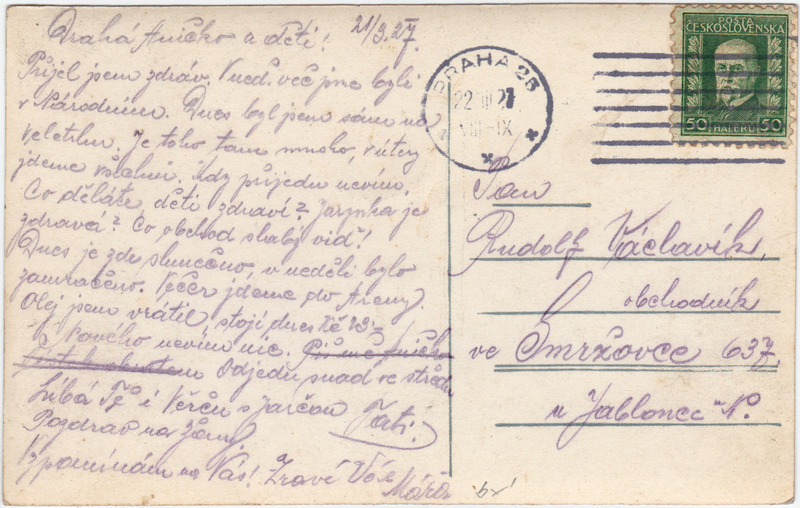 Drahá Aničko a děti! 21/3.27.
Přijel jsem zdráv. V ned. več jsme byli
v Národním. Dnes byl jsem sám na
veletrhu. Je toho tam mnoho, v úterý
jdeme všichni. Kdy přijedu nevím.
Co děláte, děti zdraví? Jarynka je
zdravá? Co obchod slabý viď!
Dnes je zde slunečno, v neděli bylo
zamračeno. Večer jdeme do Areny.
Olej jsem vrátil stojí dnes Kč
Nového nevím nic. Odjedu snad ve středu
Líbá Tě i Věrču s Jarčou Táti.
Pozdrav na
Vzpomínám na Vás! Zraví Vás
POŠTA
ČESKOSLOVENSKÁ
50 HALÉŘŮ 50
PRAHA 25
22 III 27
VIII-IX
Pan
Rudolf Václavík,
obchodník
ve Smržovce 637,
u Jablonce n/N.